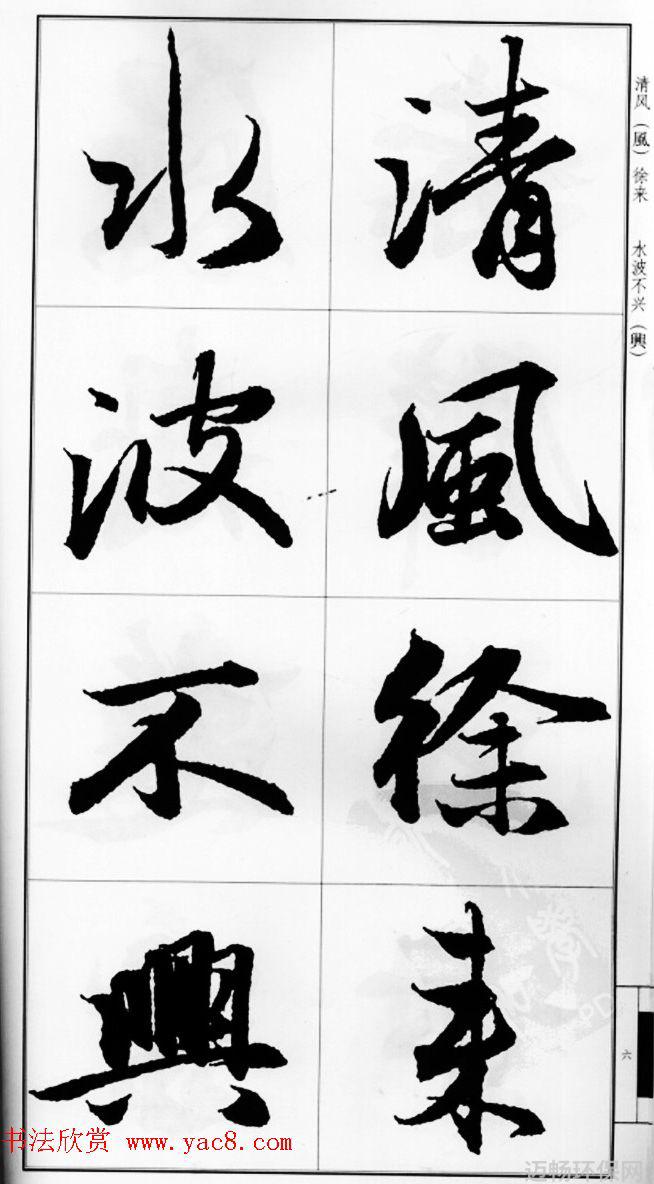 清風徐来
水波不興
清风(風)徐来 水波不兴(興)
六
书法欣赏 www.yac8.com
迈畅环保网